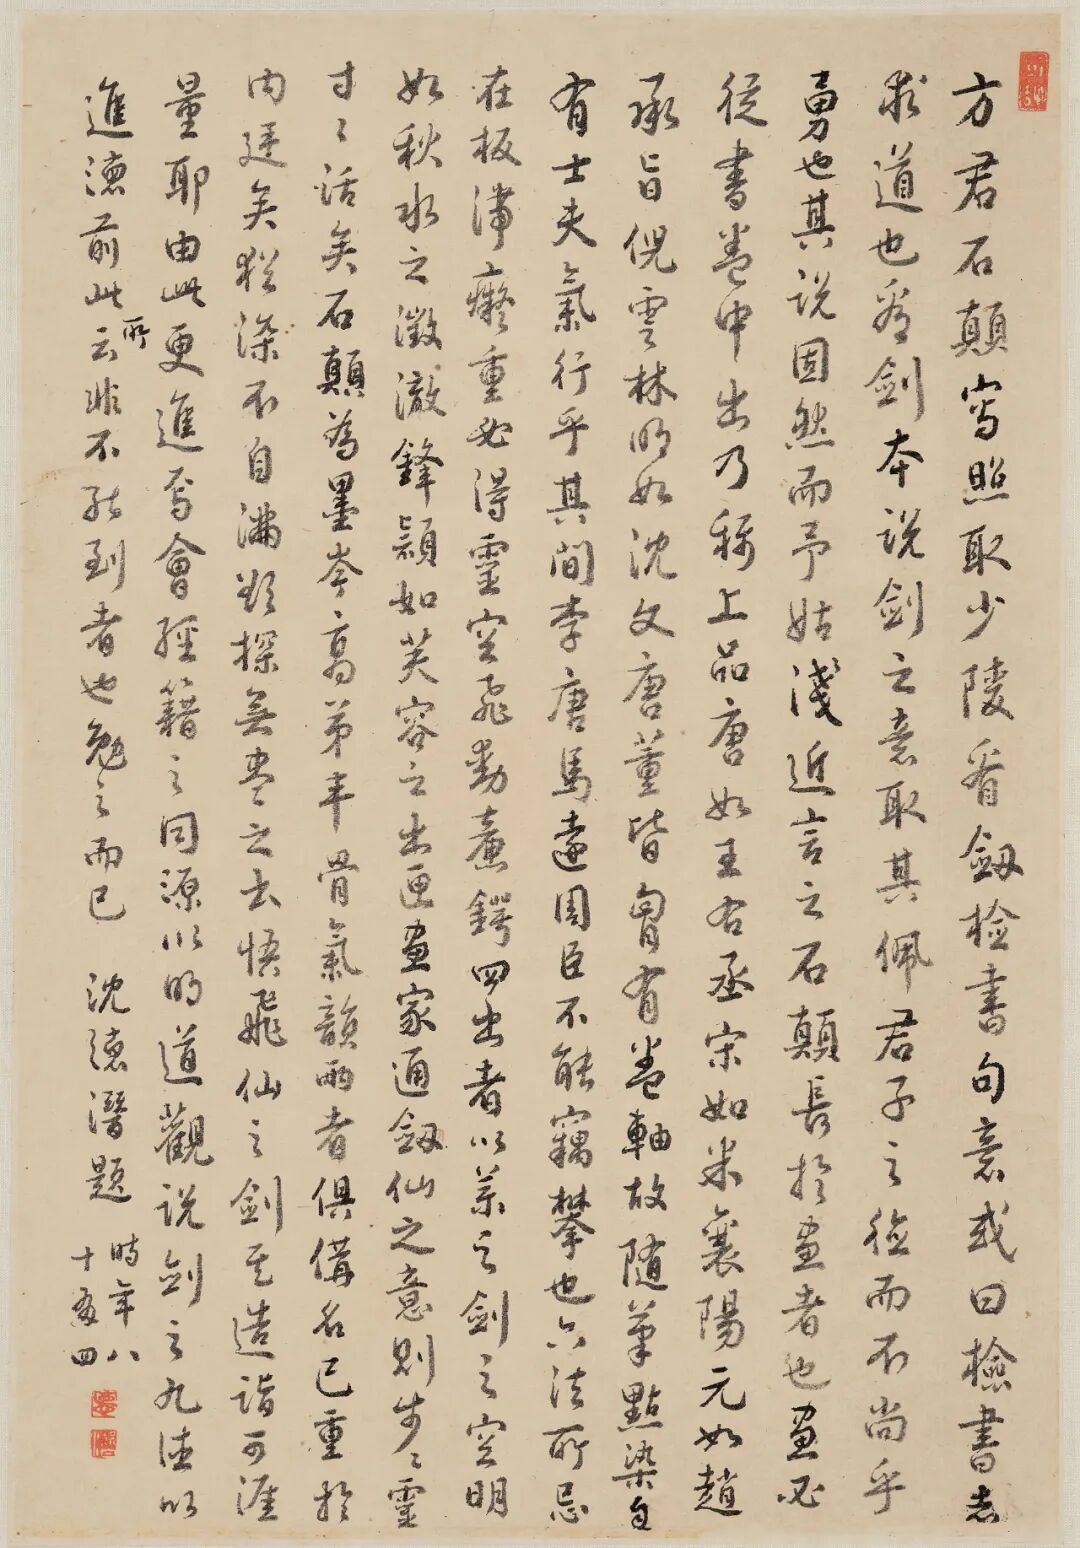 方君石顛寫照取少陵看劔檢書句意或曰檢書志
求道也看劍本說劍之意取其佩君子之德而不尚乎
勇也其說固然而予姑淺近言之石顛長於畫者也畫必
從書卷中出乃稱上品唐如王右丞宋如米襄陽元如趙
承旨倪雲林明如沈文唐董皆胷有卷軸故隨筆點染自
有士夫氣行乎其間李唐馬遠周臣不能竊攀也六法所忌
在板滯癡重必得靈空飛動鋒鍔四出者以美之劍之空明
如秋水之澂澈鋒穎如芙容之出匣畫家通劔仙之意則步〻靈
寸〻活矣石顛為墨岑高弟丰骨氣韻兩者俱備名已重於
內廷矣猶深不自滿欲探無盡之去悟飛仙之劍其造詣可涯
量耶由此更進焉會經籍之同源以明道觀說劍之九德以
進德前此所云非不能到者也勉之而已 沈德潛題
時年八
十有四